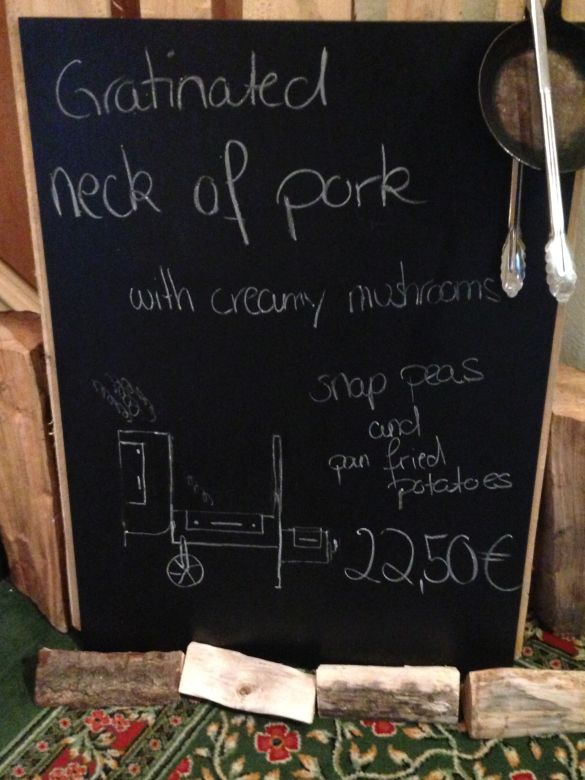 Gratinated
neck of pork
with creamy mushrooms
snap peas
and
pan fried
potatoes
22,50€